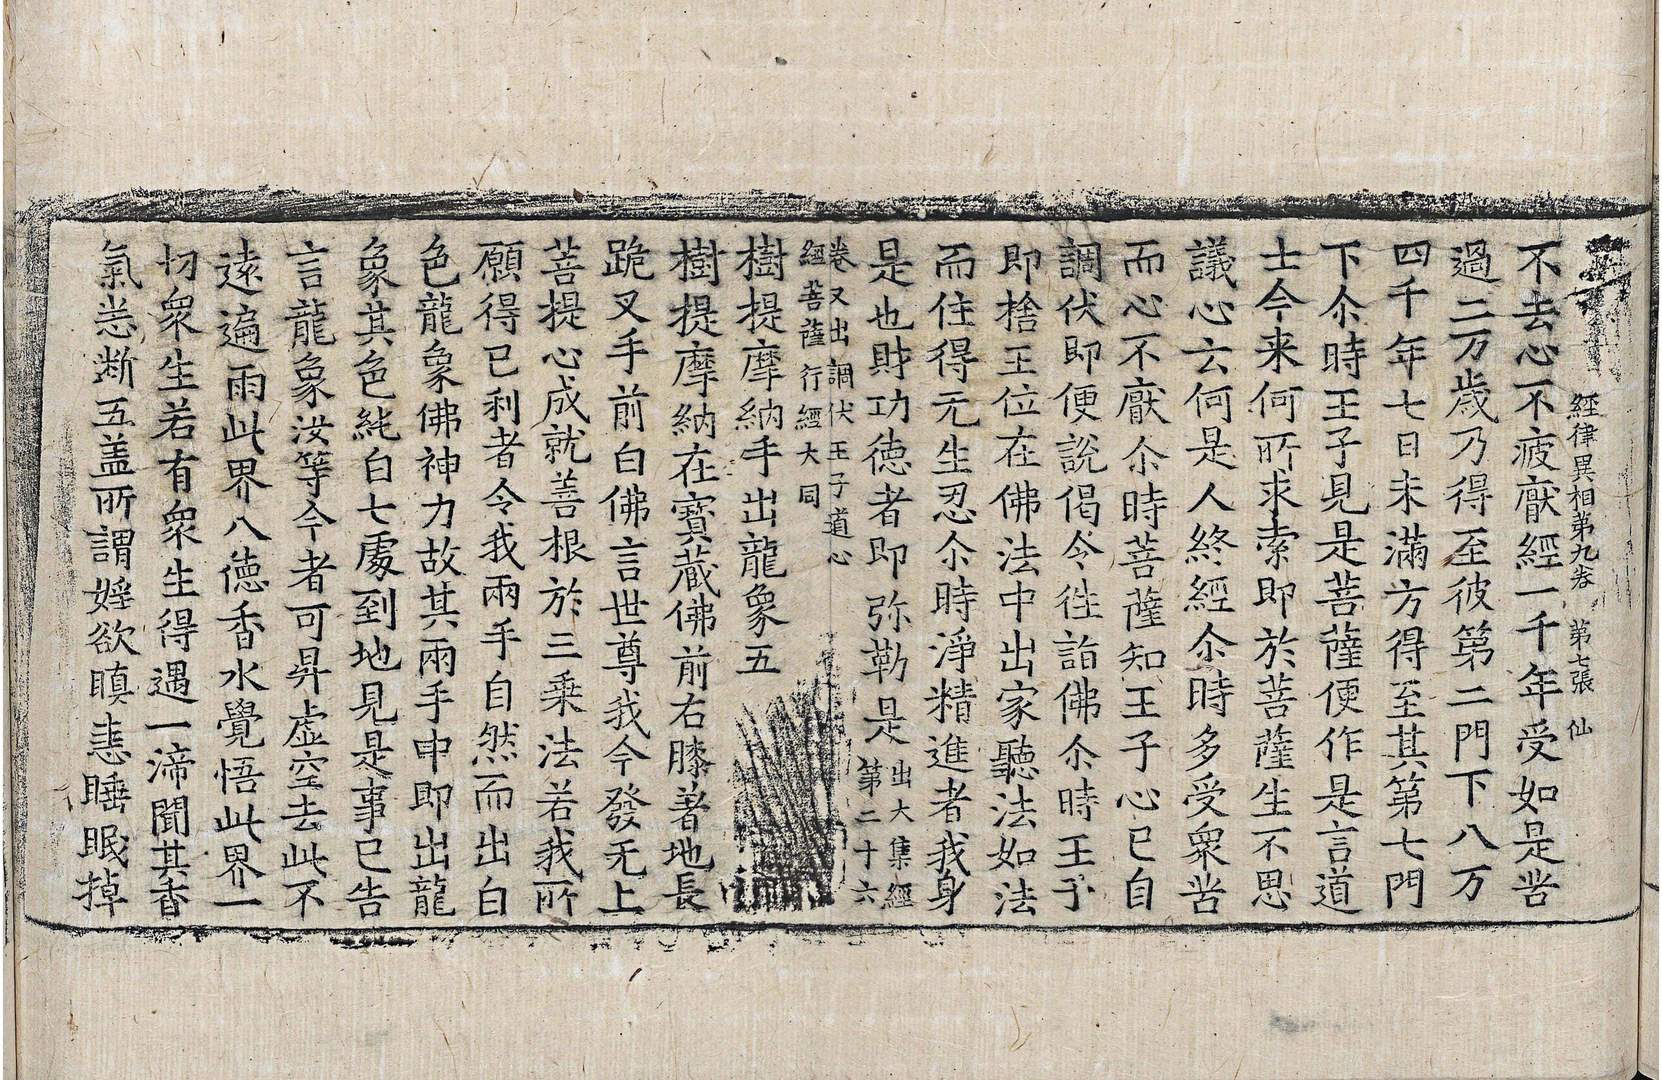 經律異相第九卷 第七張 仙
不去心不疲厭經一千年受如是苦
過二万歲乃得至彼第二門下八万
四千年七日未滿方得至其第七門
下尒時王子見是菩薩便作是言道
士今来何所求索即於菩薩生不思
議心云何是人終經尒時多受衆苦
而心不厭尒時菩薩知王子心已自
調伏即便說偈令往詣佛尒時王子
即捨王位在佛法中出家聽法如法
而住得无生忍尒時淨精進者我身
是也財功德者即弥勒是出大集經第二十六
卷又出調伏王子道心
經菩薩行經大同
樹提摩納手出龍象五
樹提摩納在寶藏佛前右膝著地長
跪叉手前白佛言世尊我今發无上
菩提心成就善根於三乘法若我所
願得已利者令我兩手自然而出白
色龍象佛神力故其兩手中即出龍
象其色純白七處到地見是事已告
言龍象汝等今者可昇虛空去此不
遠遍雨此界八德香水覺悟此界一
切衆生若有衆生得遇一渧聞其香
氣悉斷五盖所謂婬欲瞋恚睡眠掉